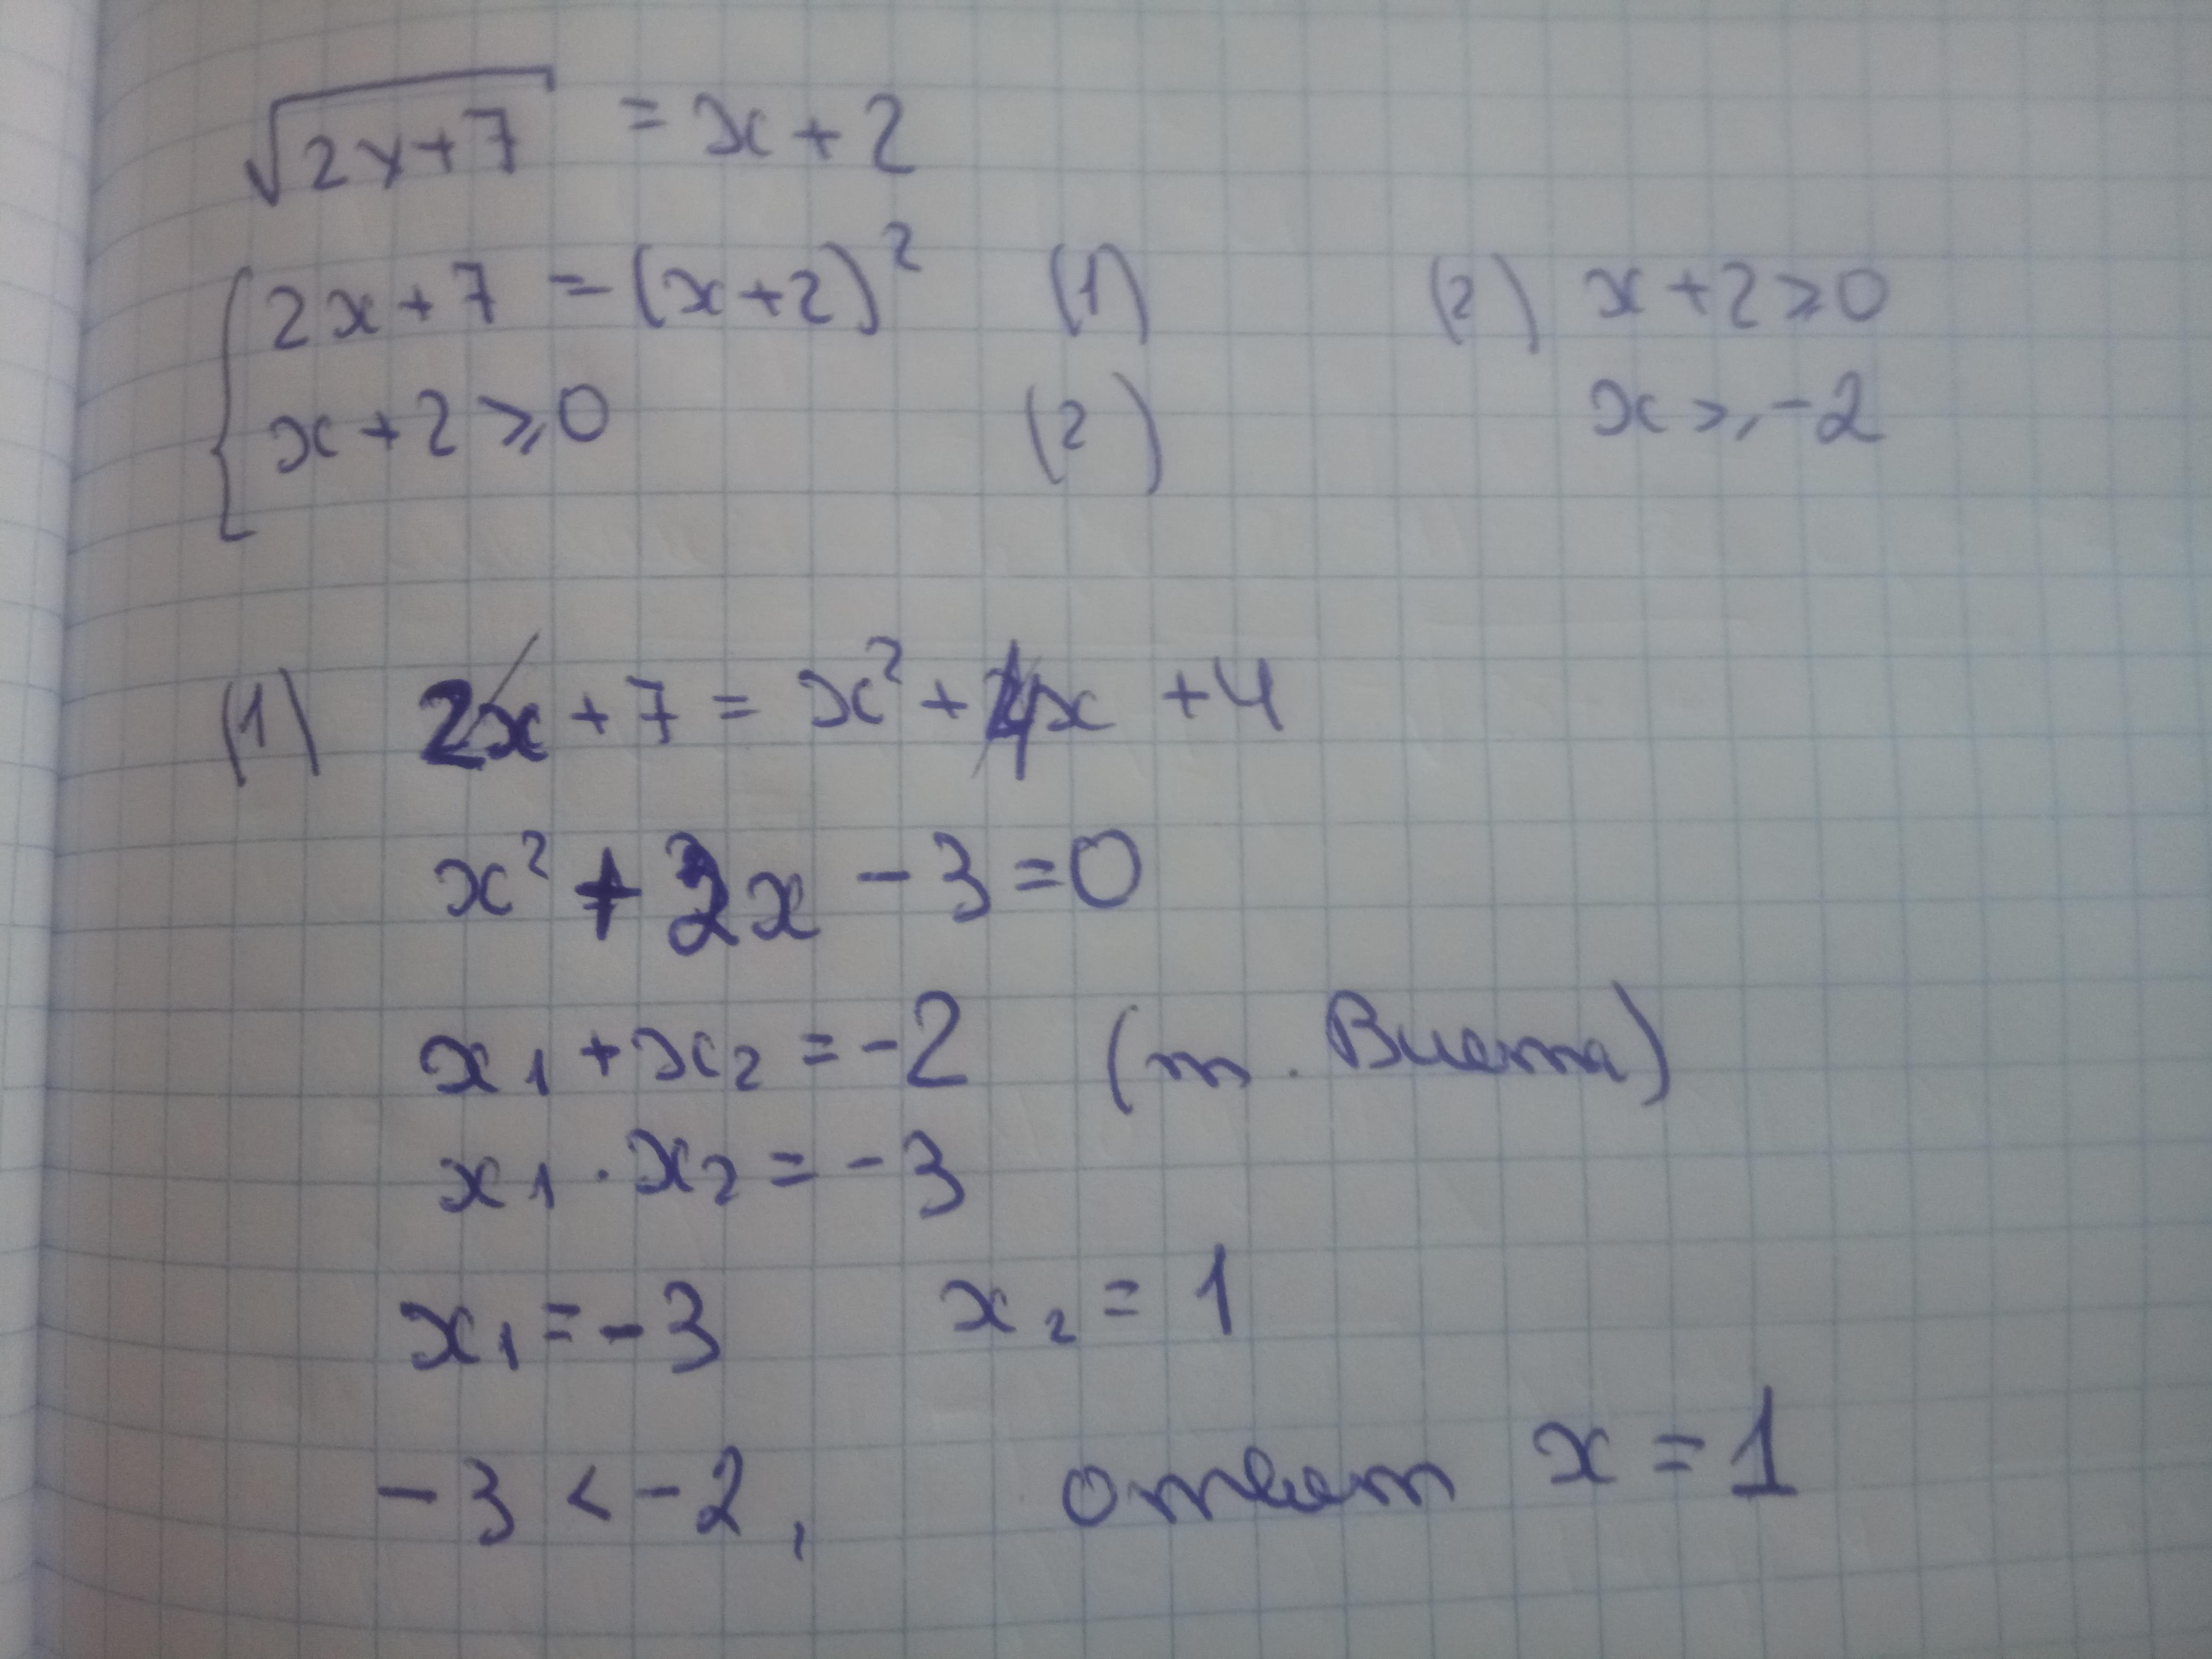 √(2x+7) = x+2
{ 2x+7 = (x+2)² (1) (2) x+2≥0
x+2≥0 (2) x≥-2
(1) 2x+7 = x²+4x+4
x²+2x-3=0
x₁+x₂=-2 (т. Виета)
x₁·x₂=-3
x₁=-3 x₂=1
-3<-2, ответ x=1